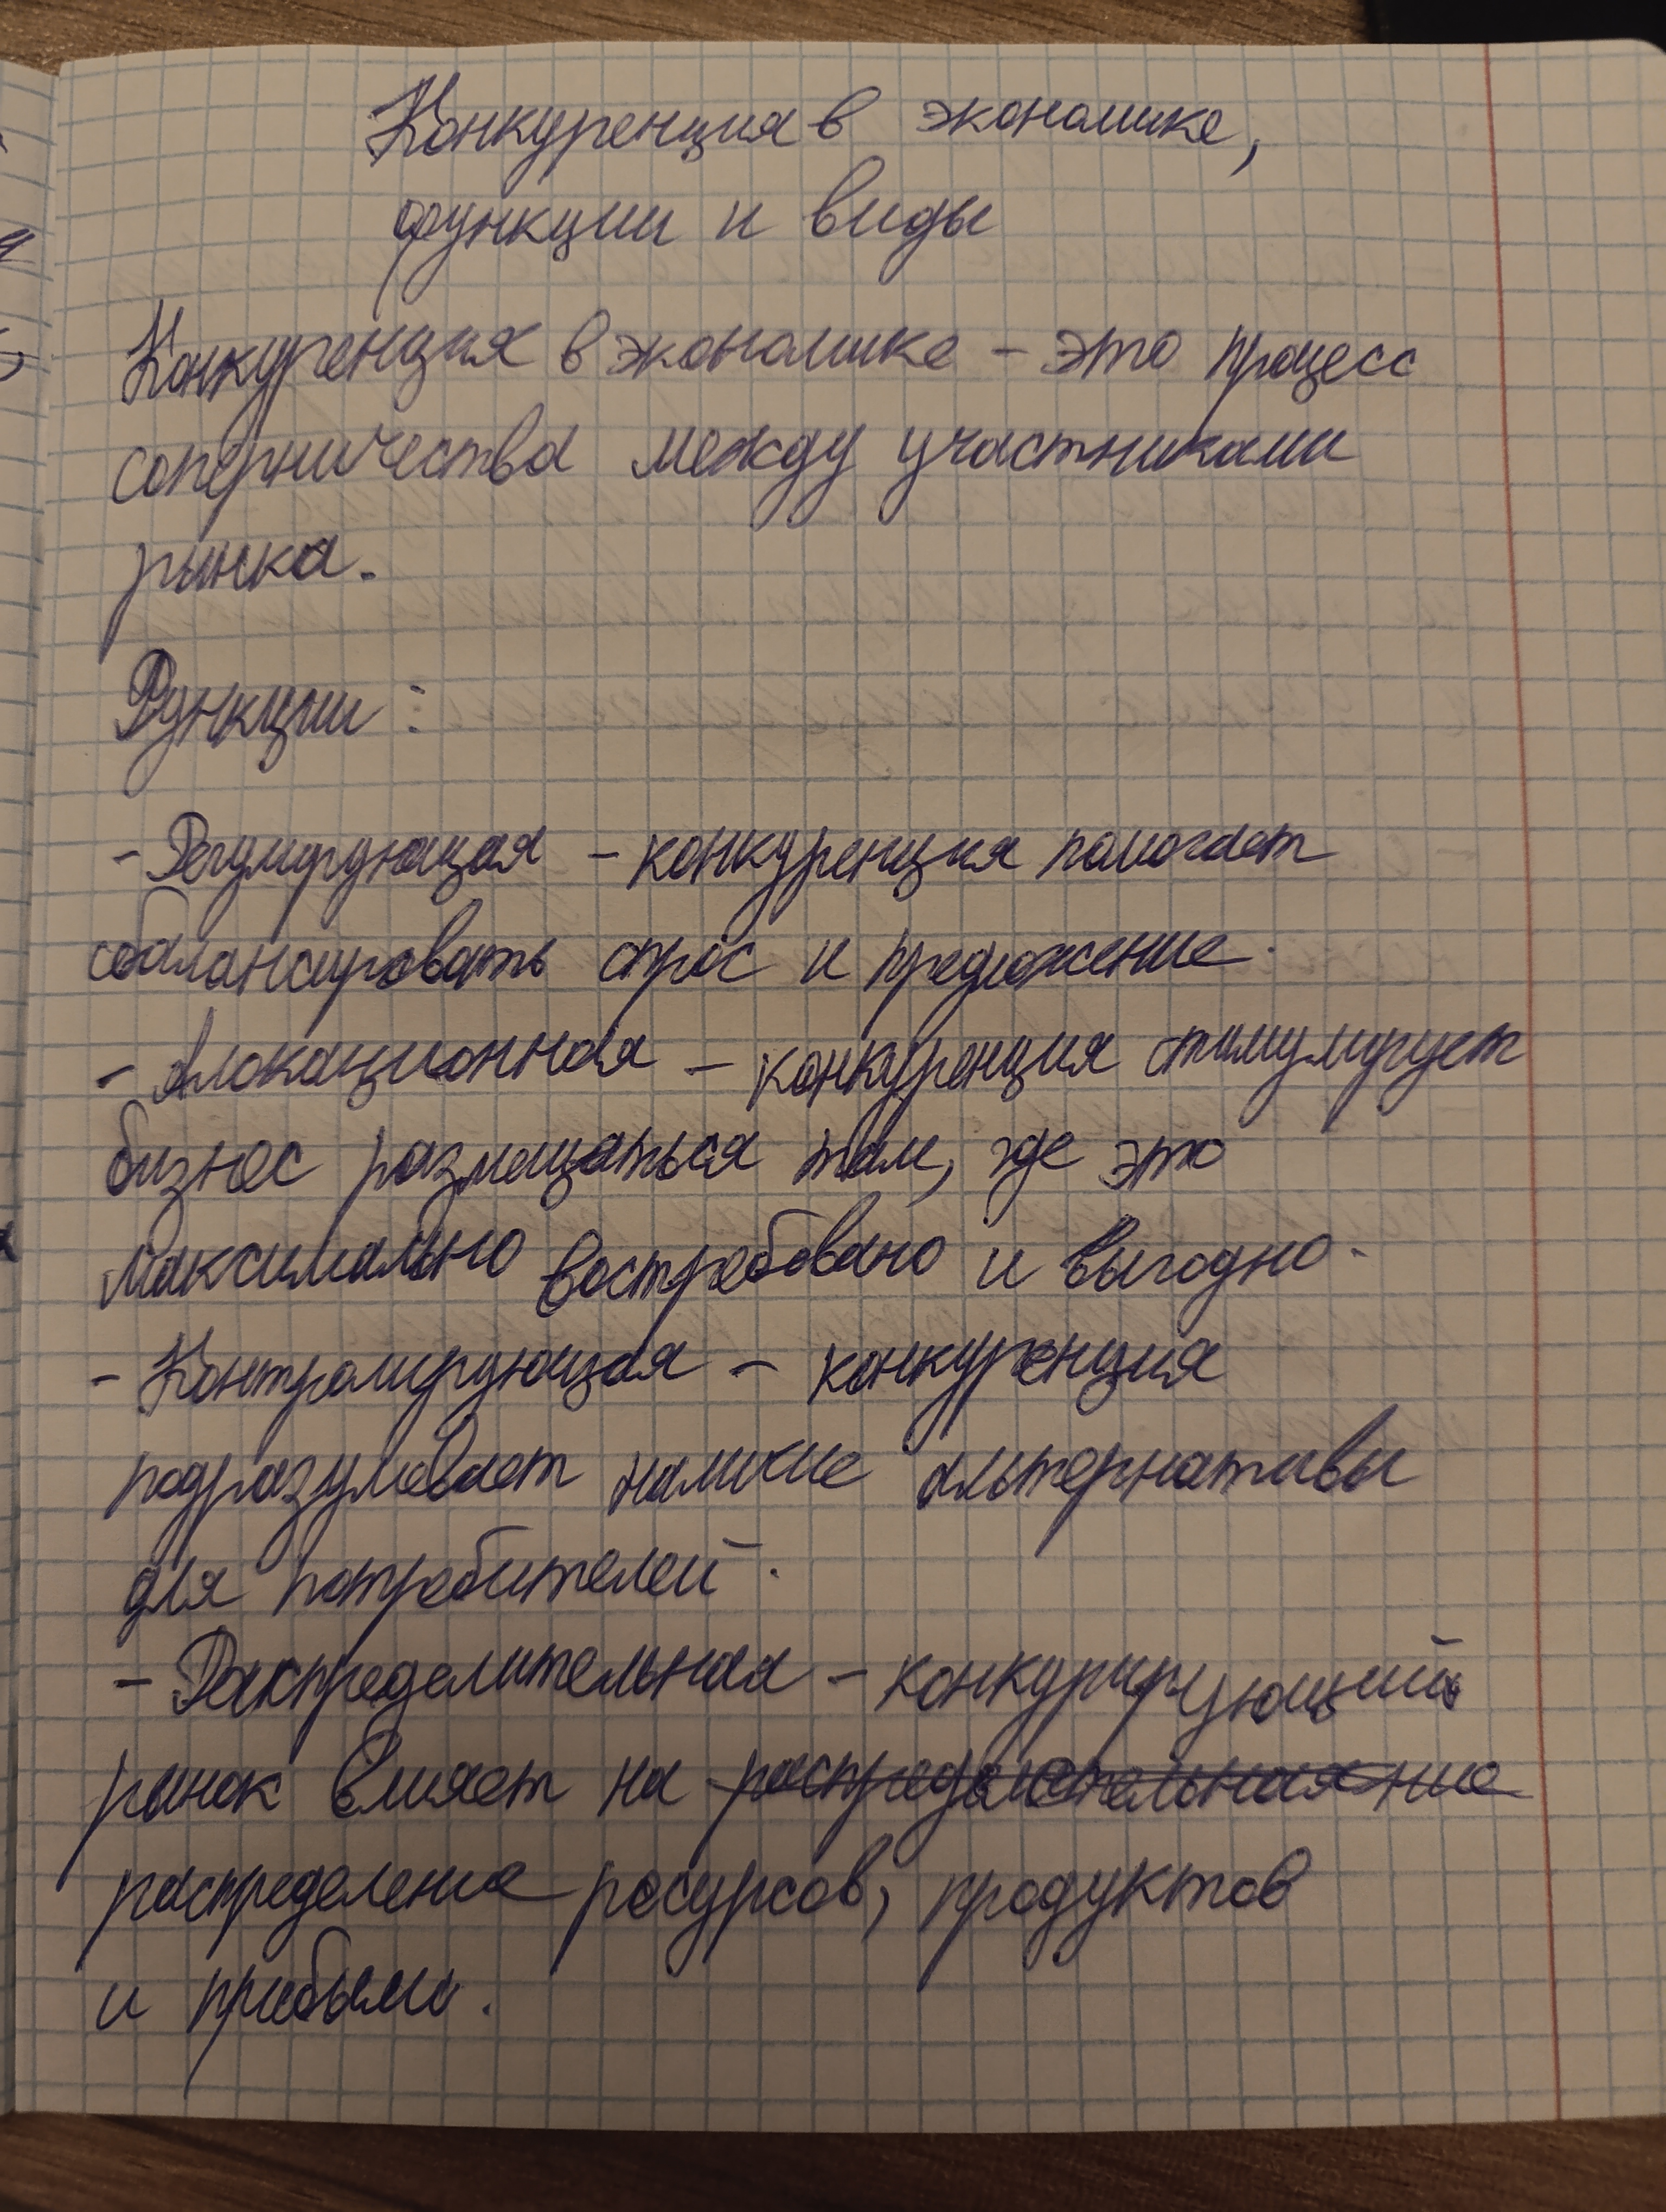 Конкуренция в экономике,
функции и виды
Конкуренция в экономике – это процесс
соперничества между участниками
рынка.
Функции:
- Регулирующая – конкуренция помогает
сбалансировать спрос и предложение.
- Алокационная – конкуренция стимулирует
бизнес размещаться там, где это
максимально востребовано и выгодно.
- Контролирующая – конкуренция
подразумевает наличие альтернативы
для потребителей.
- Распределительная – конкурирующий
рынок влияет на
распределение ресурсов, продуктов
и прибыли.